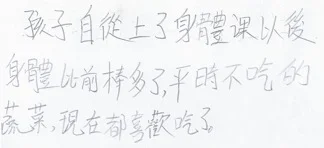 孩子自從上了身體課以後
身體比前棒多了,平時不吃的
蔬菜,現在都喜歡吃了。